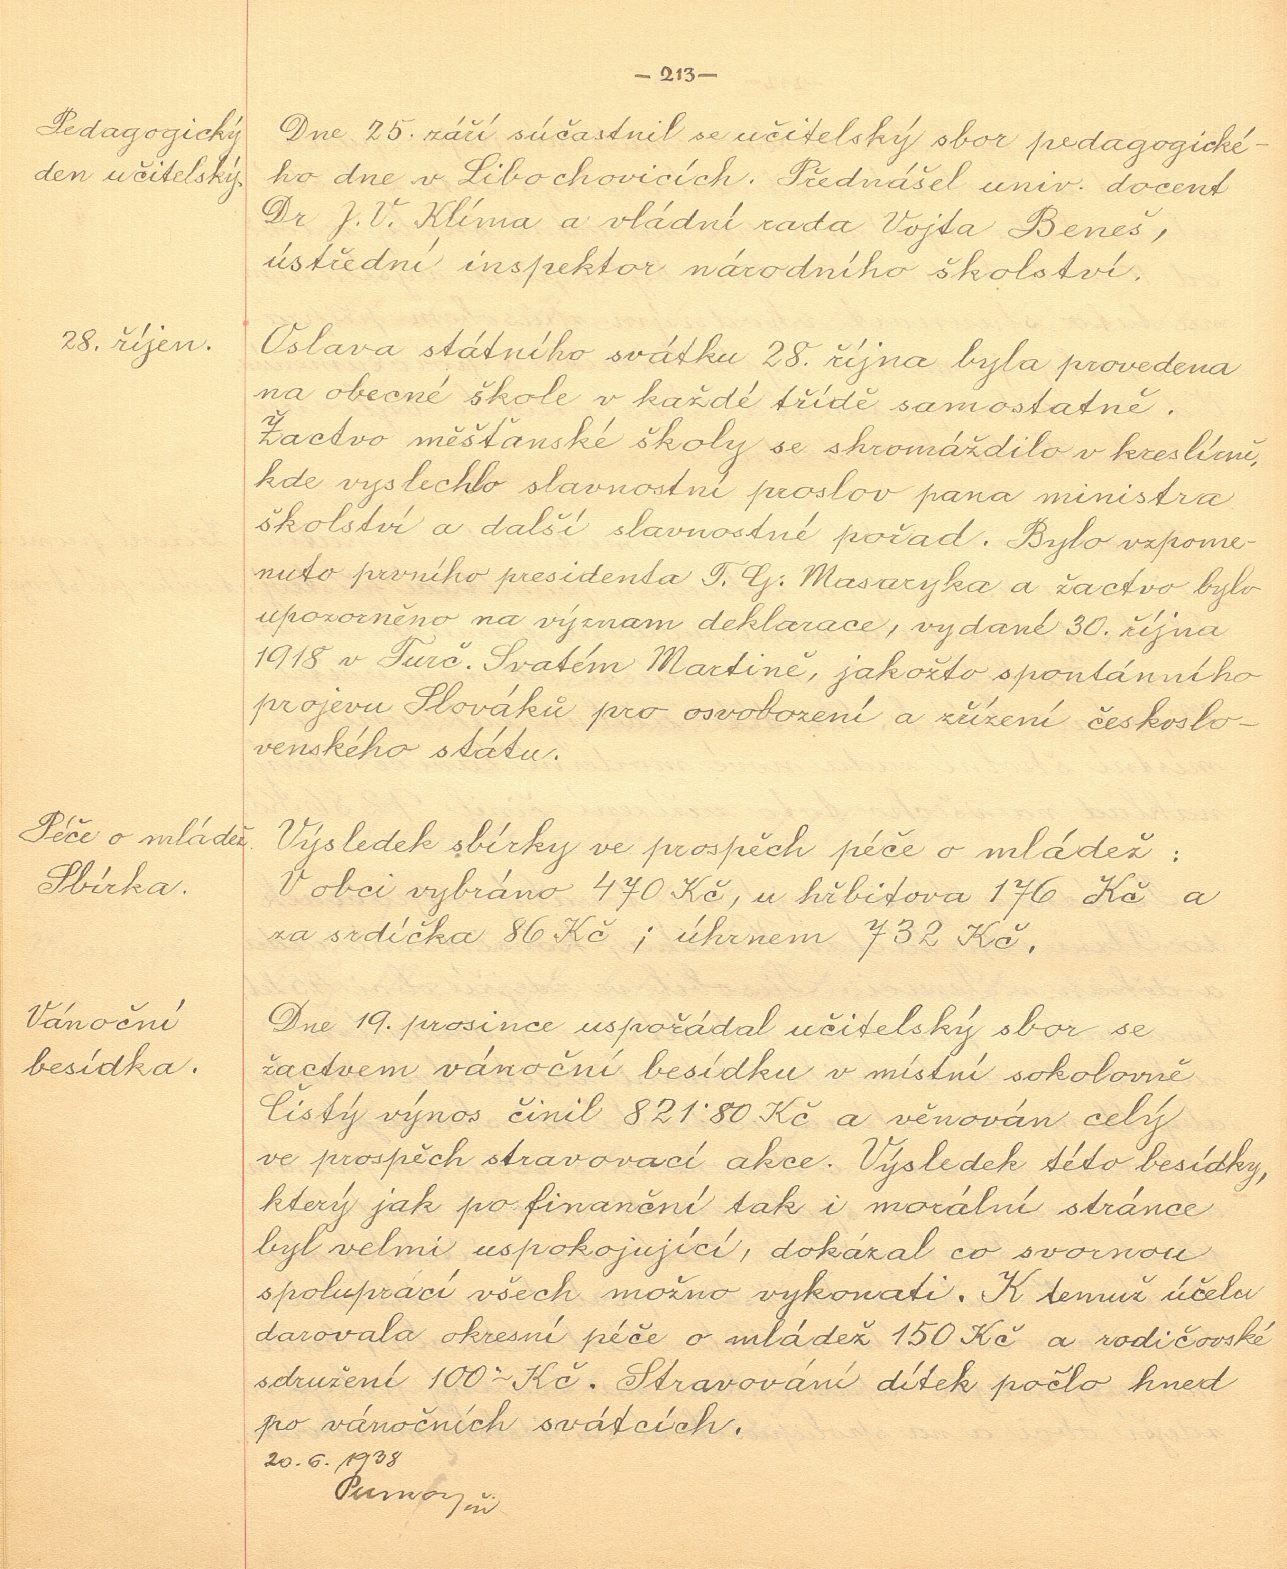 — 213 —
Pedagogický
den učitelský.
Dne 25. září súčastnil se učitelský sbor pedagogické-
ho dne v Libochovicích. Přednášel univ. docent
Dr J. V. Klíma a vládní rada Vojta Beneš,
ústřední inspektor národního školství.
28. říjen.
Oslava státního svátku 28. října byla provedena
na obecné škole v každé třídě samostatně.
Žactvo měšťanské školy se shromáždilo v kreslírně,
kde vyslechlo slavnostní proslov pana ministra
školství a další slavnostné pořad. Bylo vzpome-
nuto prvního presidenta T. G. Masaryka a žactvo bylo
upozorněno na význam deklarace, vydané 30. října
1918 v Turč. Svatém Martině, jakožto spontánního
projevu Slováků pro osvobození a zřízení českoslo-
venského státu.
Péče o mládež.
Sbírka.
Výsledek sbírky ve prospěch péče o mládež :
V obci vybráno 470 Kč, u hřbitova 176 Kč a
za srdíčka 86 Kč ; úhrnem 732 Kč.
Vánoční
besídka.
Dne 19. prosince uspořádal učitelský sbor se
žactvem vánoční besídku v místní sokolovně
Čistý výnos činil 821·80 Kč a věnován celý
ve prospěch stravovací akce. Výsledek této besídky,
který jak po finanční tak i morální stránce
byl velmi uspokojující, dokázal co svornou
spoluprácí všech možno vykonati. K temuž účelu
darovala okresní péče o mládež 150 Kč a rodičovské
sdružení 100·- Kč. Stravování dítek počlo hned
po vánočních svátcích.
20. 6. 1938